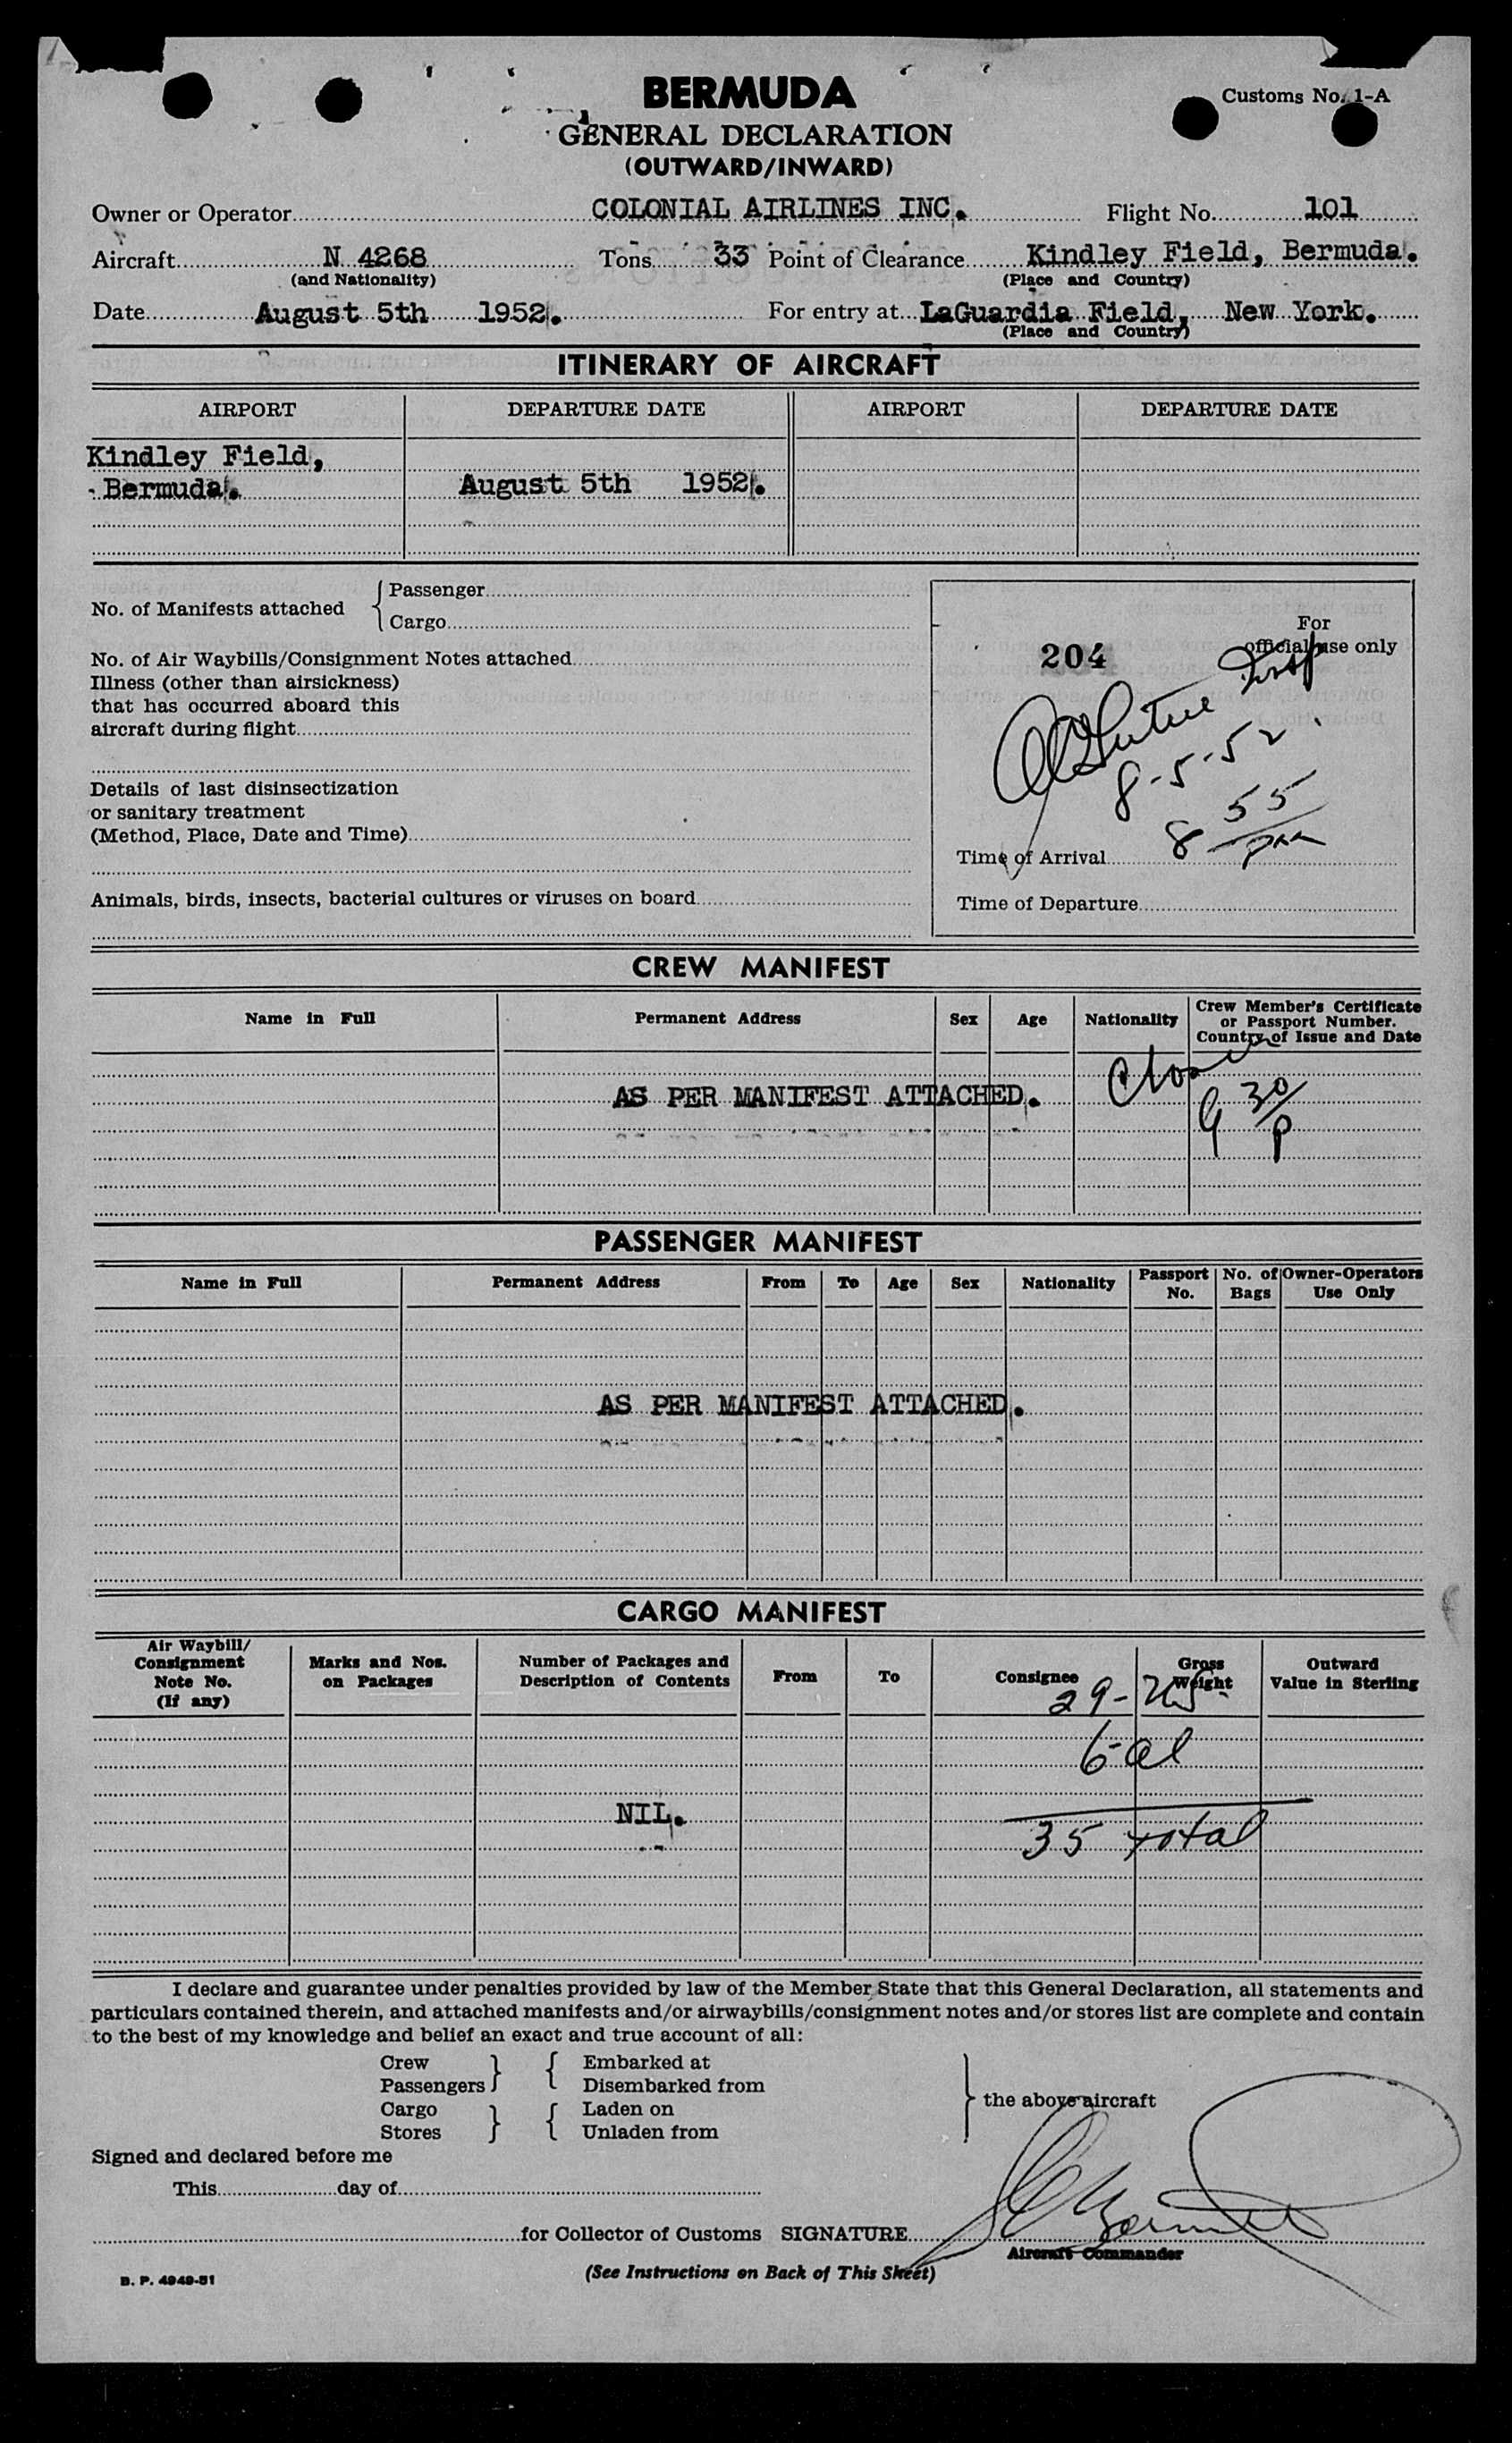 BERMUDA
Customs No. 1-A
GENERAL DECLARATION
(OUTWARD/INWARD)
Owner or Operator COLONIAL AIRLINES INC. Flight No. 101
Aircraft N 4268 Tons 33 Point of Clearance Kindley Field, Bermuda.
(and Nationality) (Place and Country)
Date August 5th 1952. For entry at LaGuardia Field, New York.
(Place and Country)
ITINERARY OF AIRCRAFT
AIRPORT DEPARTURE DATE AIRPORT DEPARTURE DATE
Kindley Field,
Bermuda. August 5th 1952.
No. of Manifests attached { Passenger
Cargo
No. of Air Waybills/Consignment Notes attached
Illness (other than airsickness)
that has occurred aboard this
aircraft during flight
Details of last disinsectization
or sanitary treatment
(Method, Place, Date and Time)
Animals, birds, insects, bacterial cultures or viruses on board
For
official use only
204
Insp
8-5-52
8 55
pm
Time of Arrival
Time of Departure
CREW MANIFEST
Name in Full Permanent Address Sex Age Nationality Crew Member's Certificate
or Passport Number.
Country of Issue and Date
AS PER MANIFEST ATTACHED.
9 30/P
PASSENGER MANIFEST
Name in Full Permanent Address From To Age Sex Nationality Passport No. No. of Bags Owner-Operators Use Only
AS PER MANIFEST ATTACHED.
CARGO MANIFEST
Air Waybill/
Consignment
Note No.
(If any)
Marks and Nos.
on Packages
Number of Packages and
Description of Contents
From To Consignee Gross Weight
Outward
Value in Sterling
29-US
6-al
NIL.
35 total
I declare and guarantee under penalties provided by law of the Member State that this General Declaration, all statements and
particulars contained therein, and attached manifests and/or airwaybills/consignment notes and/or stores list are complete and contain
to the best of my knowledge and belief an exact and true account of all:
Crew } { Embarked at
Passengers Disembarked from
Cargo } { Laden on
Stores Unladen from
} the above aircraft
Signed and declared before me
This day of
for Collector of Customs SIGNATURE
Aircraft Commander
(See Instructions on Back of This Sheet)
B. P. 4949-51